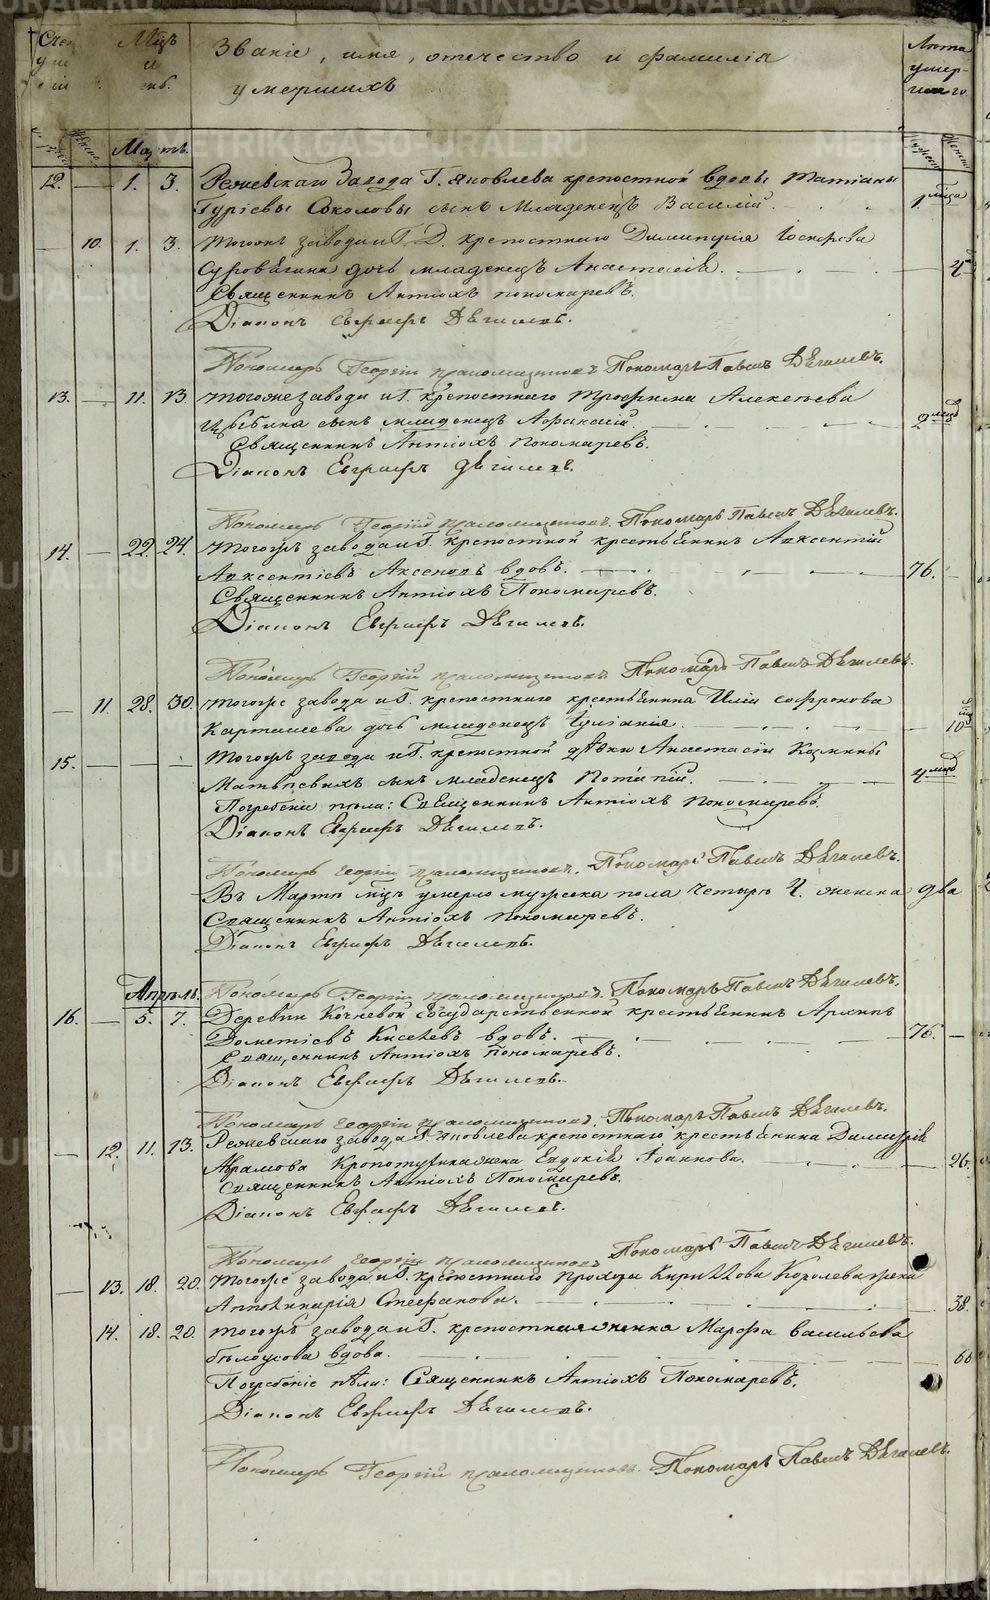 Званіе, имя, отечество и фамилія
умершихъ
Лѣта
умер-
Мартъ.
12. — 1. 3. Режевскаго Завода Г. Яковлева крепостной вдовы Татіаны
Гуріевы Соколовы сынъ младенецъ Василій. 1 мца
— 10. 1. 3. Тогожъ завода и Г. крепостнаго Димитрія
дочь младенецъ Анастасія.
Священникъ Антіохъ Пономаревъ.
Діаконъ Евграфъ Дѣгилевъ.
Пономарь Георгій Пономарь Павелъ Дѣгилевъ.
13. — 11. 13. Тогоже завода и Г. крепостнаго Трофима Алексѣева
сынъ младенецъ Афанасій. 2 мцъ
Священникъ Антіохъ Пономаревъ.
Діаконъ Евграфъ Дѣгилевъ.
Пономарь Георгій Пономарь Павелъ Дѣгилевъ.
14. — 22. 24. Тогожъ завода и Г. крепостной крестьянинъ Авксентій
Авксентіевъ Аксеновъ вдовъ. 76.
Священникъ Антіохъ Пономаревъ.
Діаконъ Евграфъ Дѣгилевъ.
Пономарь Георгій Пономарь Павелъ Дѣгилевъ.
— 11. 28. 30. Тогоже завода и Г. крепостнаго крестьянина Иліи Софронова
Карташева дочь младенецъ Іуліанія. 10
15. — — Тогожъ завода и Г. крепостной дѣвки Анастасіи Козмины
Матвѣевыхъ сынъ младенецъ Потапій. 4 мцъ
Погребеніе пѣли: Священникъ Антіохъ Пономаревъ.
Діаконъ Евграфъ Дѣгилевъ.
Пономарь Георгій Пономарь Павелъ Дѣгилевъ.
Въ Мартѣ мцѣ умерло мужеска пола четыре 4. женска два
Священникъ Антіохъ Пономаревъ.
Діаконъ Евграфъ Дѣгилевъ.
Пономарь Георгій Пономарь Павелъ Дѣгилевъ.
Апрѣль.
16. — 5. 7. Деревни Кочневой государственной крестьянинъ Архипъ
Дометіевъ Киселевъ вдовъ. 76. —
Священникъ Антіохъ Пономаревъ.
Діаконъ Евграфъ Дѣгилевъ.
Пономарь Георгій Пономарь Павелъ Дѣгилевъ.
— 12. 11. 13. Режевскаго завода Г. Яковлева крепостнаго крестьянина Димитрія
Абрамова жена Евдокія Іоаннова. 26.
Священникъ Антіохъ Пономаревъ.
Діаконъ Евграфъ Дѣгилевъ.
Пономарь Георгій Пономарь Павелъ Дѣгилевъ.
— 13. 18. 20. Тогоже завода и Г. крепостнаго Прохора Кириллова Королева жена
Апполинарія Стефанова. 38.
14. 18. 20. Тогожъ завода и Г. крепостная женка Марфа Васильева
Бѣлоусова вдова. 60
Погребеніе пѣли: Священникъ Антіохъ Пономаревъ.
Діаконъ Евграфъ Дѣгилевъ.
Пономарь Георгій Пономарь Павелъ Дѣгилевъ.
METRIKI.GASO-URAL.RU